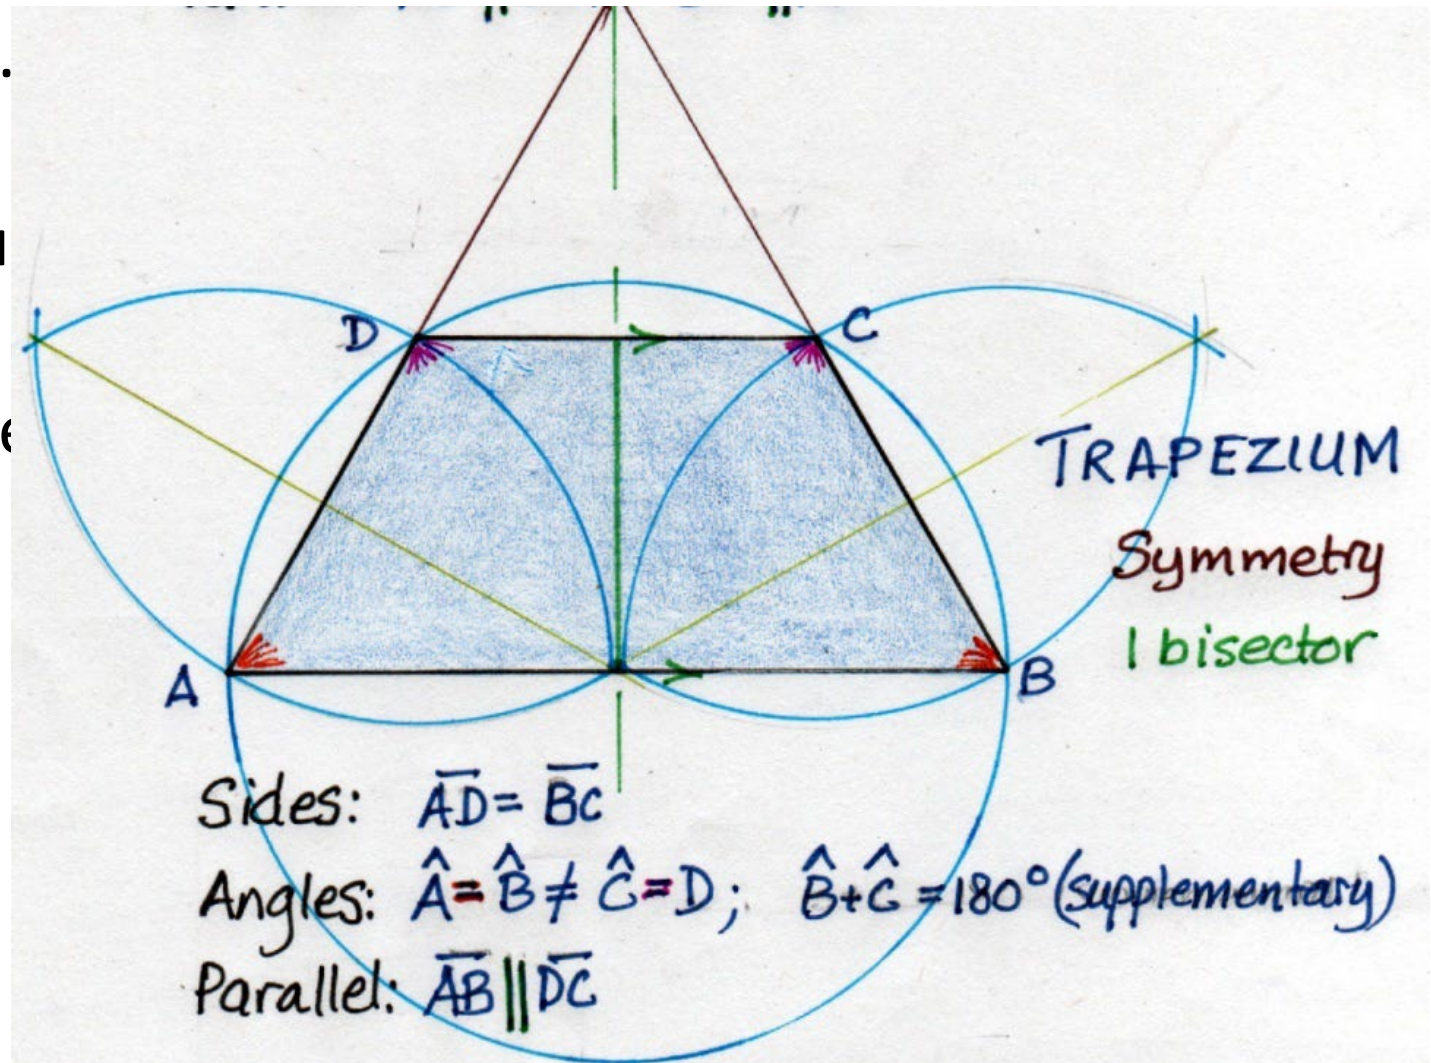 D
C
TRAPEZIUM
Symmetry
1 bisector
A
B
Sides: A̅D̅ = B̅C̅
Angles: Â = B̂ ≠ Ĉ = D; B̂ + Ĉ = 180° (supplementary)
Parallel: A̅B̅ || D̅C̅